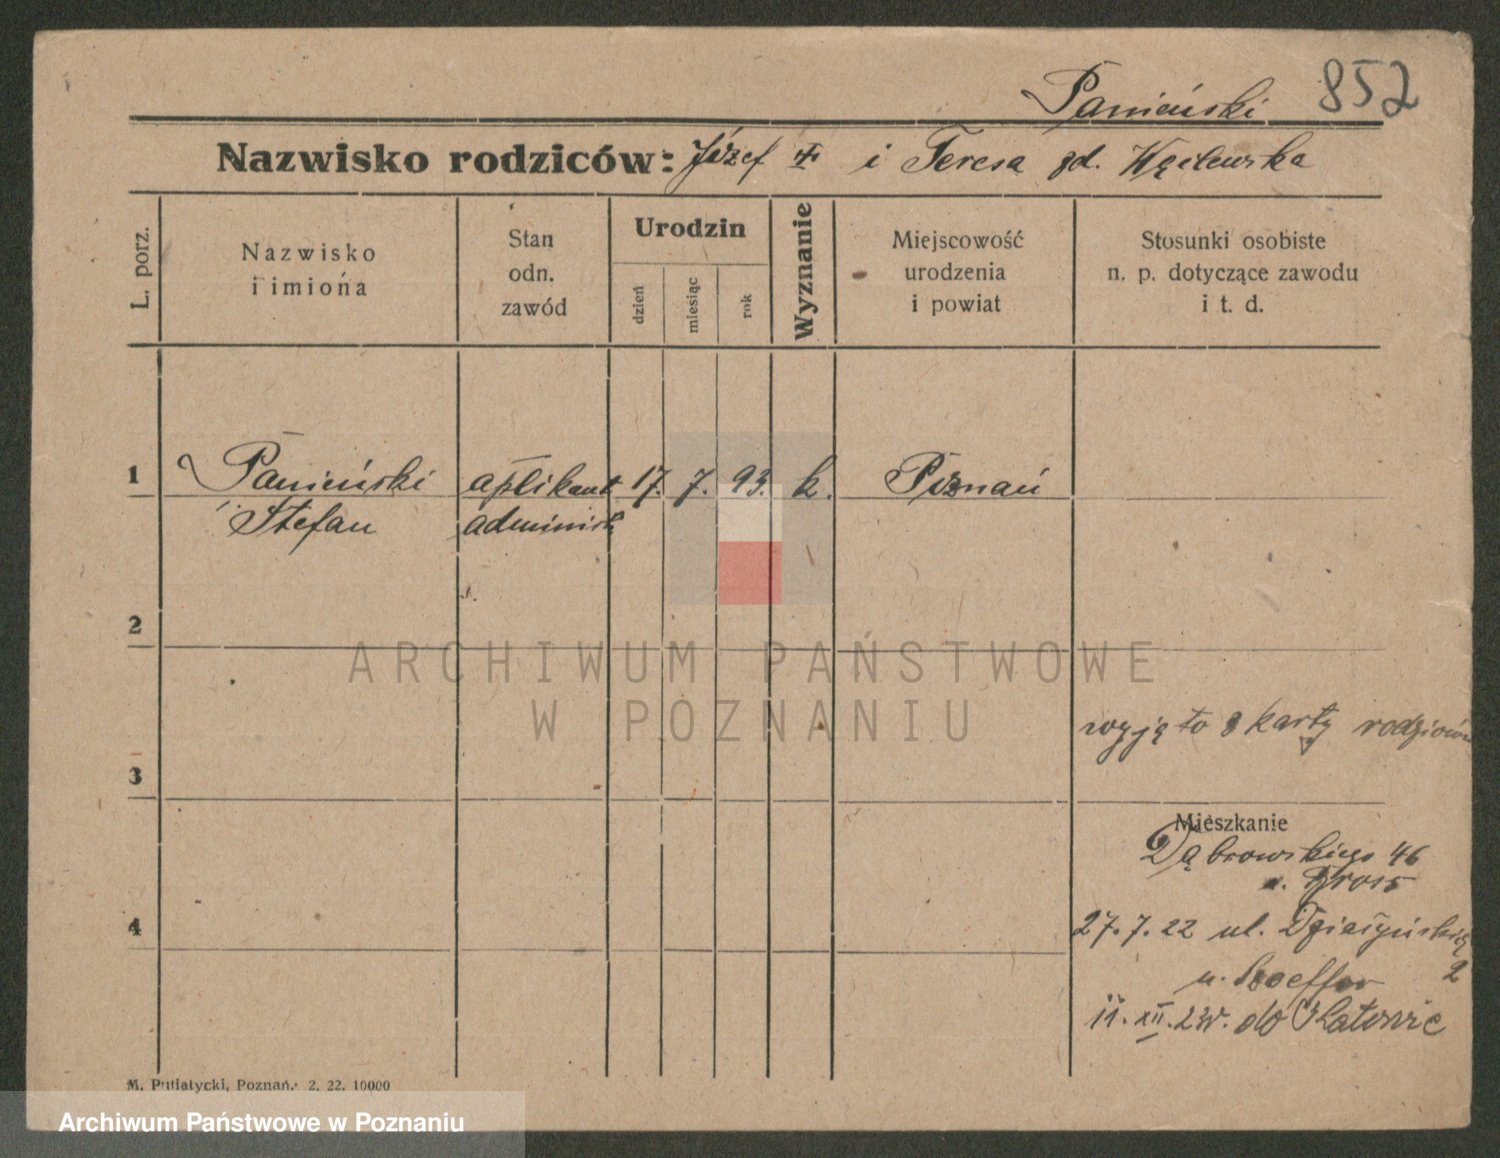 Panieński 852
Nazwisko rodziców: Józef + i Teresa zd. Węclewska
L. porz.
Nazwisko
i imiona
Stan
odn.
zawód
Urodzin
dzień
miesiąc
rok
Wyznanie
Miejscowość
urodzenia
i powiat
Stosunki osobiste
n. p. dotyczące zawodu
i t. d.
1 Panieński aplikant 17. 7. 93. k. Poznań
Stefan administr.
2
ARCHIWUM PAŃSTWOWE
W POZNANIU
wyjęto z karty rodziców
3
Mieszkanie
Dąbrowskiego 46
u. Gross
4 27.7.22 ul. Działyńskich
2
u.
11. XII. 23 r. do Katowic
M. Putiatycki, Poznań. 2. 22. 10000
Archiwum Państwowe w Poznaniu